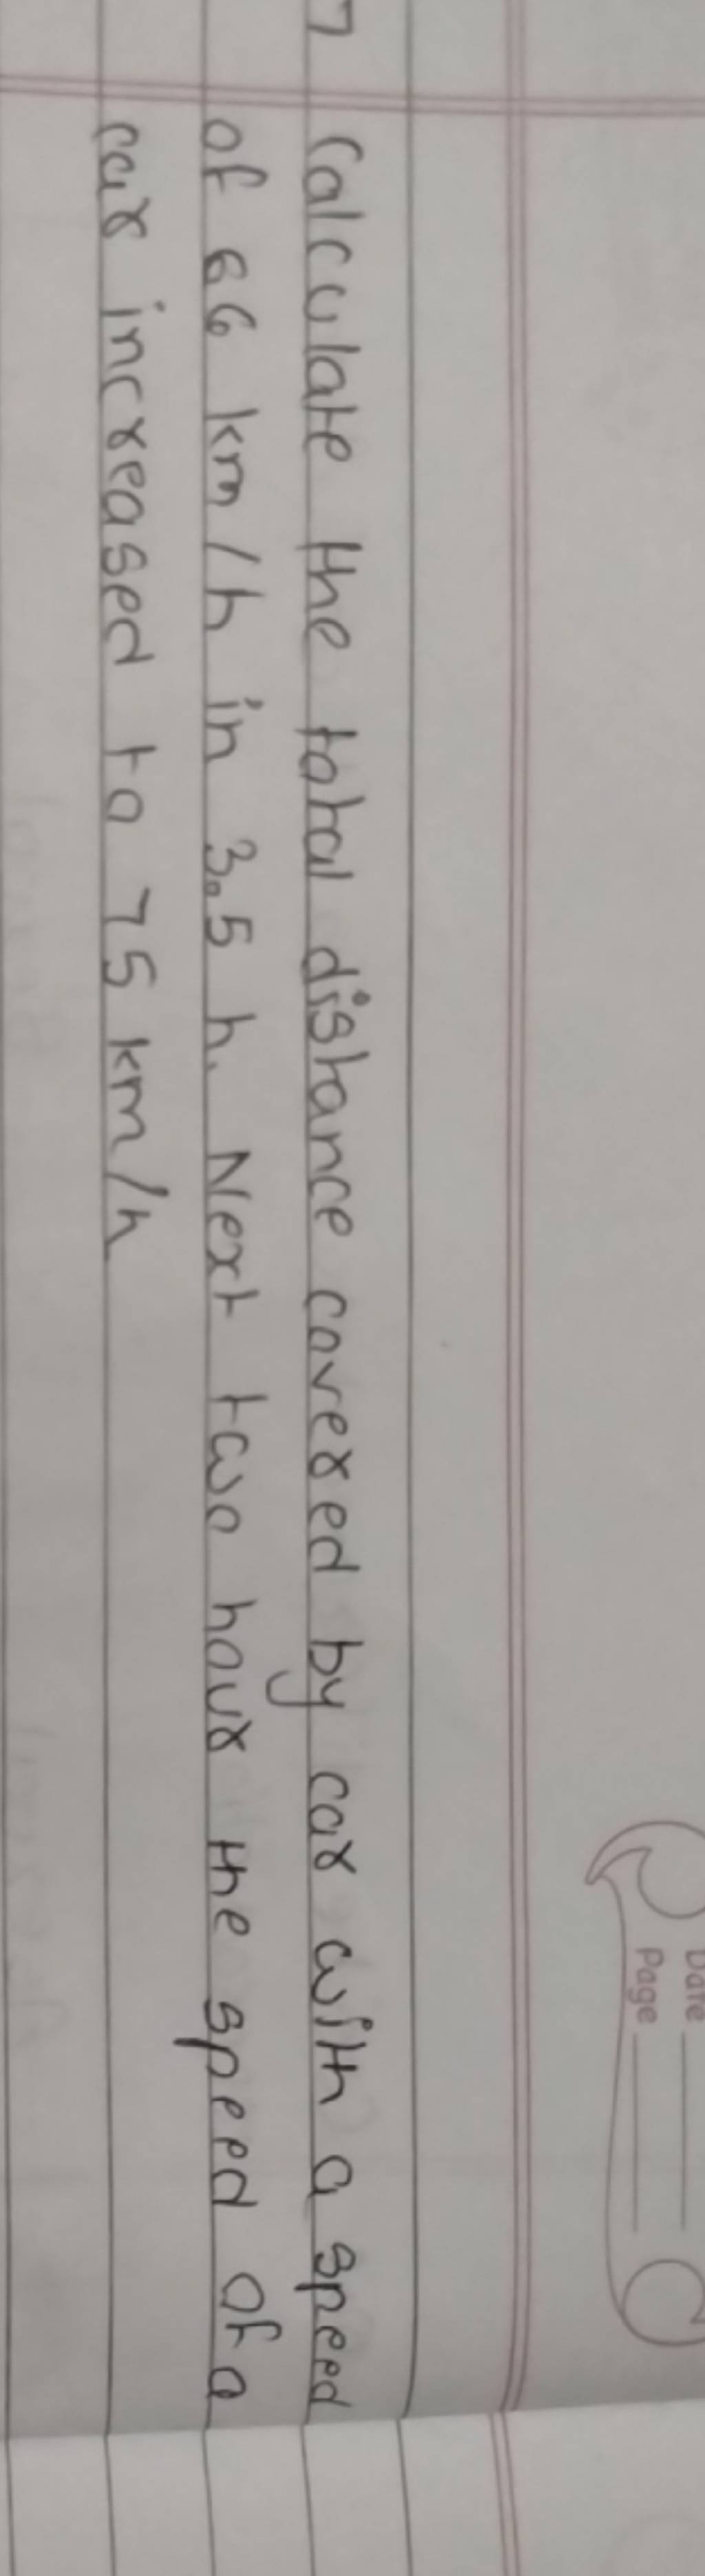 Date
Page
7 Calculate the total distance covered by car with a speed
of 66 km/h in 3.5 h. Next two hour the speed of a
car increased to 75 km/h